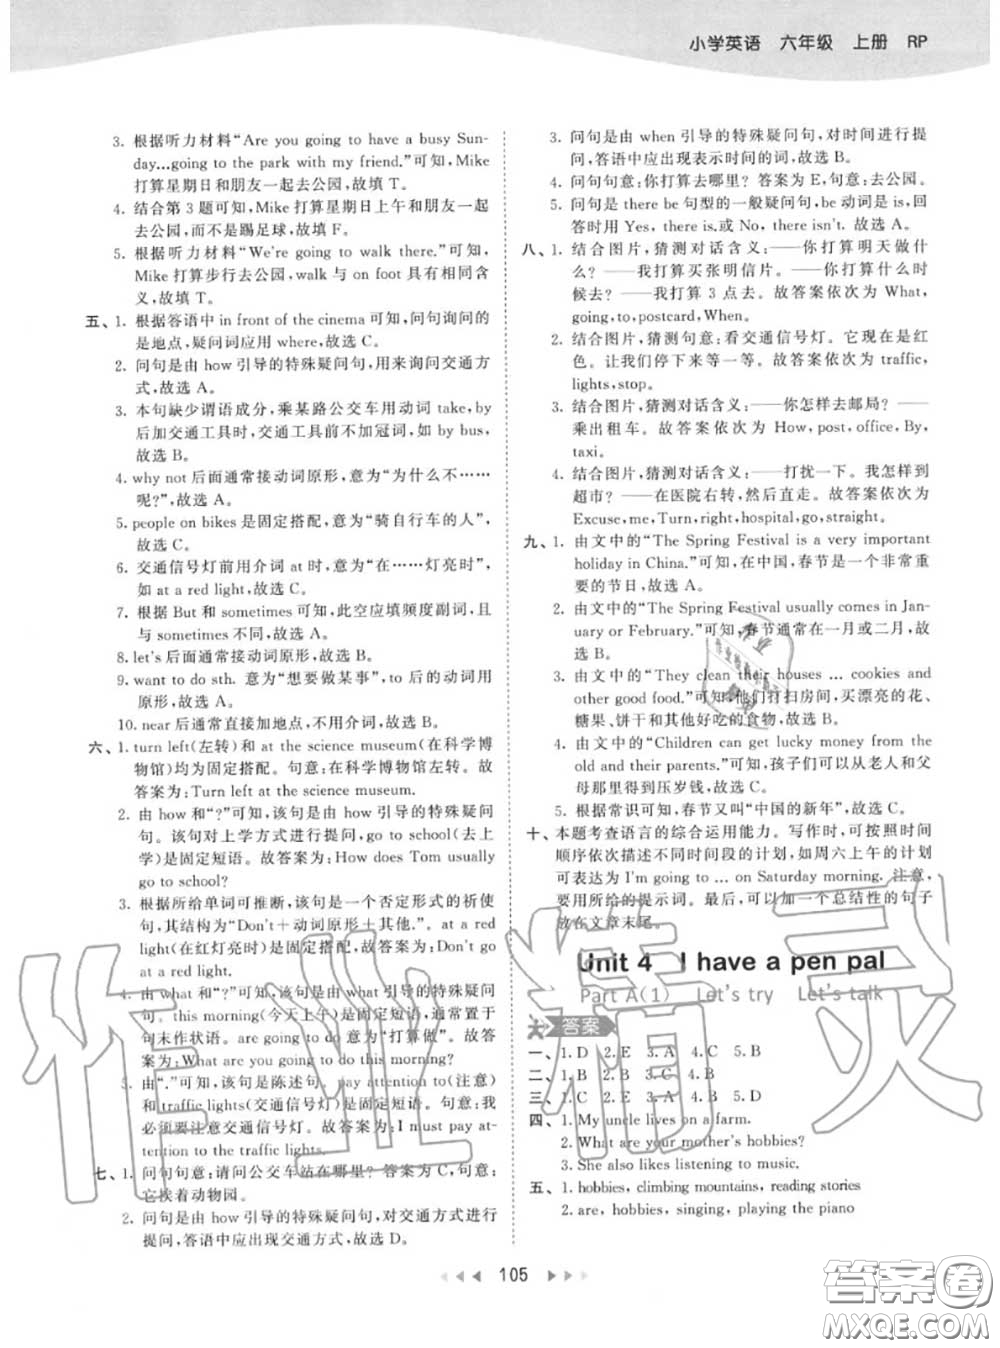 小学英语 六年级 上册 RP
3. 根据听力材料“Are you going to have a busy Sun-
day…going to the park with my friend.”可知,Mike
打算星期日和朋友一起去公园,故填 T。
4. 结合第 3 题可知,Mike 打算星期日上午和朋友一起
去公园,而不是踢足球,故填 F。
5. 根据听力材料“We're going to walk there.”可知,
Mike 打算步行去公园,walk 与 on foot 具有相同的含
义,故填 T。
五、1. 根据答语中 in front of the cinema 可知,问句询问的
是地点,疑问词应用 where,故选 C。
2. 问句是由 how 引导的特殊疑问句,用来询问交通方
式,故选 A。
3. 本句缺少谓语成分,乘某路公交车用动词 take,by
后加交通工具时,交通工具前不加冠词,如 by bus,
故选 B。
4. why not 后面通常接动词原形,意为“为什么不……
呢?”,故选 A。
5. people on bikes 是固定搭配,意为“骑自行车的人”,
故选 C。
6. 交通信号灯前用介词 at 时,意为“在……灯亮时”,
如 at a red light,故选 C。
7. 根据 But 和 sometimes 可知,此空应填频度副词,且
与 sometimes 不同,故选 A。
8. let's 后面通常接动词原形,故选 B。
9. want to do sth. 意为“想要做某事”,to 后的动词用
原形,故选 A。
10. near 后通常直接加地点,不用介词,故选 B。
六、1. turn left(左转)和 at the science museum(在科学博
物馆)均为固定搭配。句意:在科学博物馆左转。故
答案为:Turn left at the science museum.
2. 由 how 和“?”可知,该句是由 how 引导的特殊疑问
句。该句对上学方式进行提问,go to school(去上
学)是固定短语。故答案为:How does Tom usually
go to school?
3. 根据所给单词可推断,该句为一个否定形式的祈使
句,其结构为“Don't＋动词原形＋其他.”。at a red
light(在红灯亮时)是固定搭配,故答案为:Don't go
at a red light.
4. 由 what 和“?”可知,该句是由 what 引导的特殊疑问
句。this morning(今天上午)是固定短语,通常置于
句末作状语。are going to do 意为“打算做”。故答
案为:What are you going to do this morning?
5. 由“.”可知,该句是陈述句。pay attention to(注意)
和 traffic lights(交通信号灯)是固定短语。句意:我
必须要注意交通信号灯。故答案为:I must pay at-
tention to the traffic lights.
七、1. 问句句意:请问公交车站在哪里? 答案为 C,句意:
它挨着动物园。
2. 问句是由 how 引导的特殊疑问句,对交通方式进行
提问,答语中应出现交通方式,故选 D。
3. 问句是由 when 引导的特殊疑问句,对时间进行提
问,答语中应出现表示时间的词,故选 B。
4. 问句句意:你打算去哪里? 答案为 E,句意:去公园。
5. 问句是 there be 句型的一般疑问句,be 动词是 is,回
答时用 Yes, there is.或 No, there isn't. 故选 A。
八、1. 结合图片,猜测对话含义:——你打算明天做什
么? ——我打算买张明信片。——你打算什么时
候去? ——我打算 3 点去。故答案依次为 What,
going,to,postcard,When。
2. 结合图片,猜测句意:看交通信号灯。它现在是红
色。让我们停下来等一等。故答案依次为 traffic,
lights,stop。
3. 结合图片,猜测对话含义:——你怎样去邮局? ——
乘出租车。故答案依次为 How,post,office,By,
taxi。
4. 结合图片,猜测对话含义:——打扰一下。我怎样到
超市? ——在医院右转,然后直走。故答案依次为
Excuse,me,Turn,right,hospital,go,straight。
九、1. 由文中的“The Spring Festival is a very important
holiday in China.”可知,在中国,春节是一个非常重
要的节日,故选 A。
2. 由文中的“The Spring Festival usually comes in Jan-
uary or February.”可知,春节通常在一月或二月,故
选 B。
3. 由文中的“They clean their houses … cookies and
other good food.”可知,他们打扫房间,买漂亮的花、
糖果、饼干和其他好吃的食物,故选 A。
4. 由文中的“Children can get lucky money from the
old and their parents.”可知,孩子们可以从老人和父
母那里得到压岁钱,故选 C。
5. 根据常识可知,春节又叫“中国的新年”,故选 C。
十、本题考查语言的综合运用能力。写作时,可按照时间
顺序依次描述不同时间段的计划,如周六上午的计划
可表达为 I'm going to … on Saturday morning. 注意,
要用所给的提示词。最后,可以加一个总结性的句子
放在文章末尾。
Unit 4 I have a pen pal
Part A(1) Let's try Let's talk
答案
一、1. D 2. E 3. A 4. C 5. B
二、1. B 2. B 3. C 4. B
三、1. C 2. E 3. A 4. B 5. D
四、1. My uncle lives on a farm.
2. What are your mother's hobbies?
3. She also likes listening to music.
五、1. hobbies, climbing mountains, reading stories
2. are, hobbies, singing, playing the piano
105
作业精灵
答案圈
MXQE.COM